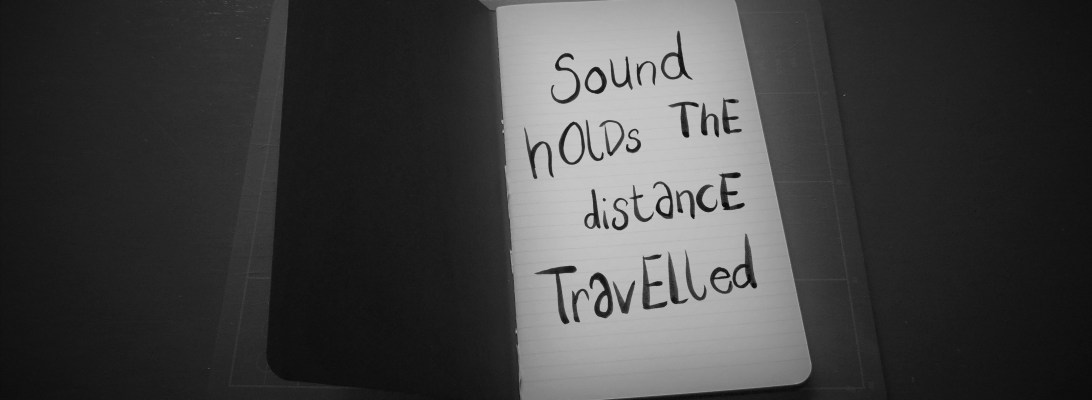 Sound
hOlDs ThE
distancE
TravELLed